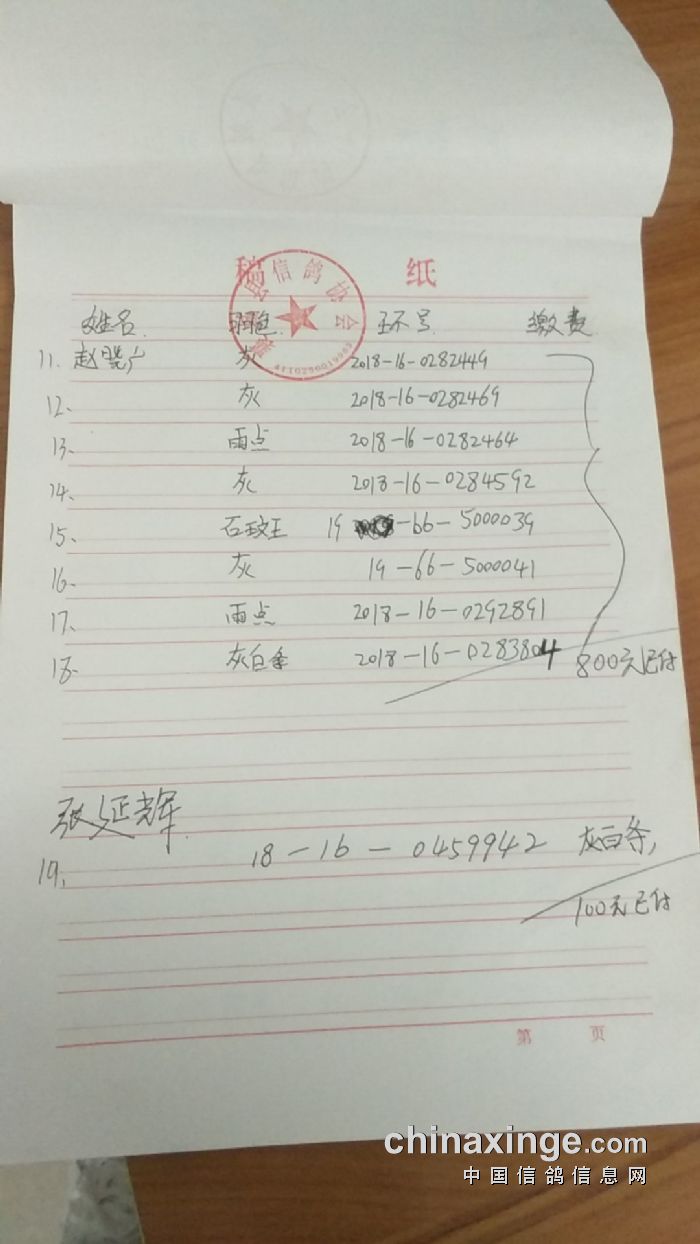 稿 纸
信鸽协会
4110250019965
姓名 羽色 环号 缴费
11. 赵晓广 灰 2018-16-0282449
12、 灰 2018-16-0282469
13、 雨点 2018-16-0282464
14、 灰 2018-16-0284592
15、 石玟王 19 -66-5000039
16、 灰 19-66-5000041
17、 雨点 2018-16-0292891
18、 灰白条 2018-16-0283804 800元已付
张延辉
19、 18-16-0459942 灰白条,
100元已付
第 页
chinaxinge.com
中国信鸽信息网